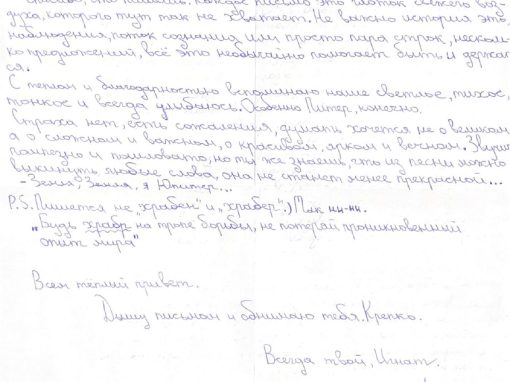 спасибо, что пишешь. Каждое письмо это глоток свежего воз-
духа, которого тут так не хватает. Не важно история это,
наблюдения, поток сознания или просто пара строк, несколь-
ко предложений, всё это необычайно помогает быть и держат
ся.
С теплом и благодарностью вспоминаю наше светлое, тихое,
тонкое и всегда улыбаюсь. Особенно Питер, конечно.
Страха нет, есть сожаления, думать хочется не о великом
а о сложном и важном, о красивом, ярком и вечном. Звучит
помпезно и пошловато, но ты же знаешь, что из песни можно
выкинуть любые слова, она не станет менее прекрасной...
- Земля, Земля, я Юпитер...
P.S. Пишется не "храбен" и "храбер".) Так ни-ни.
"Будь храбр на тропе борьбы, не потеряй проникновенный
опыт мира"
Всем тёплый привет.
Дышу письмом и обнимаю тебя. Крепко.
Всегда твой, Игнат.